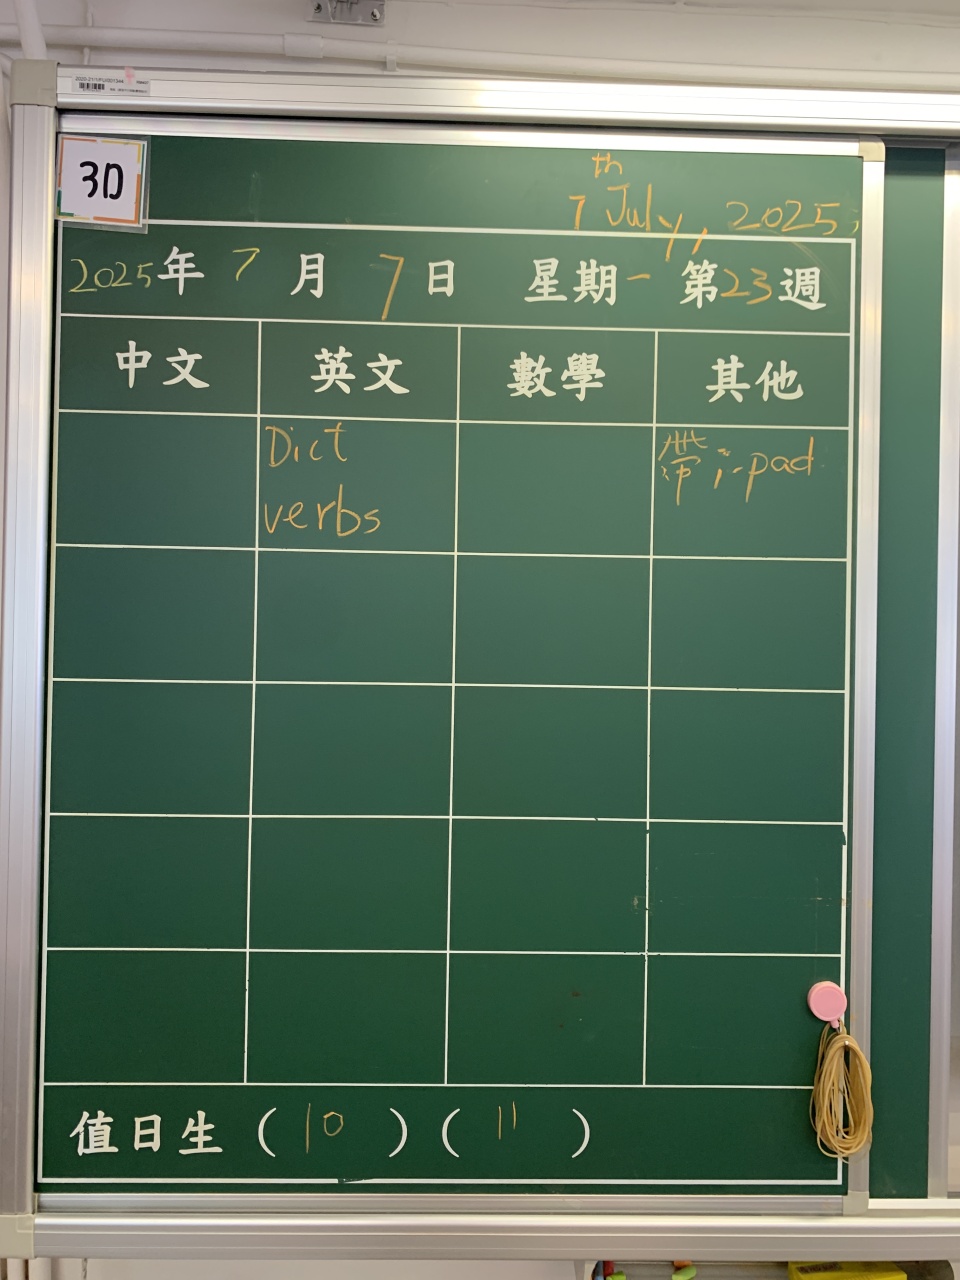 3D
7th July, 2025
2025年 7 月 7 日 星期一 第23週
中文 英文 數學 其他
Dict 帶i-pad
verbs
值日生 ( 10 ) ( 11 )